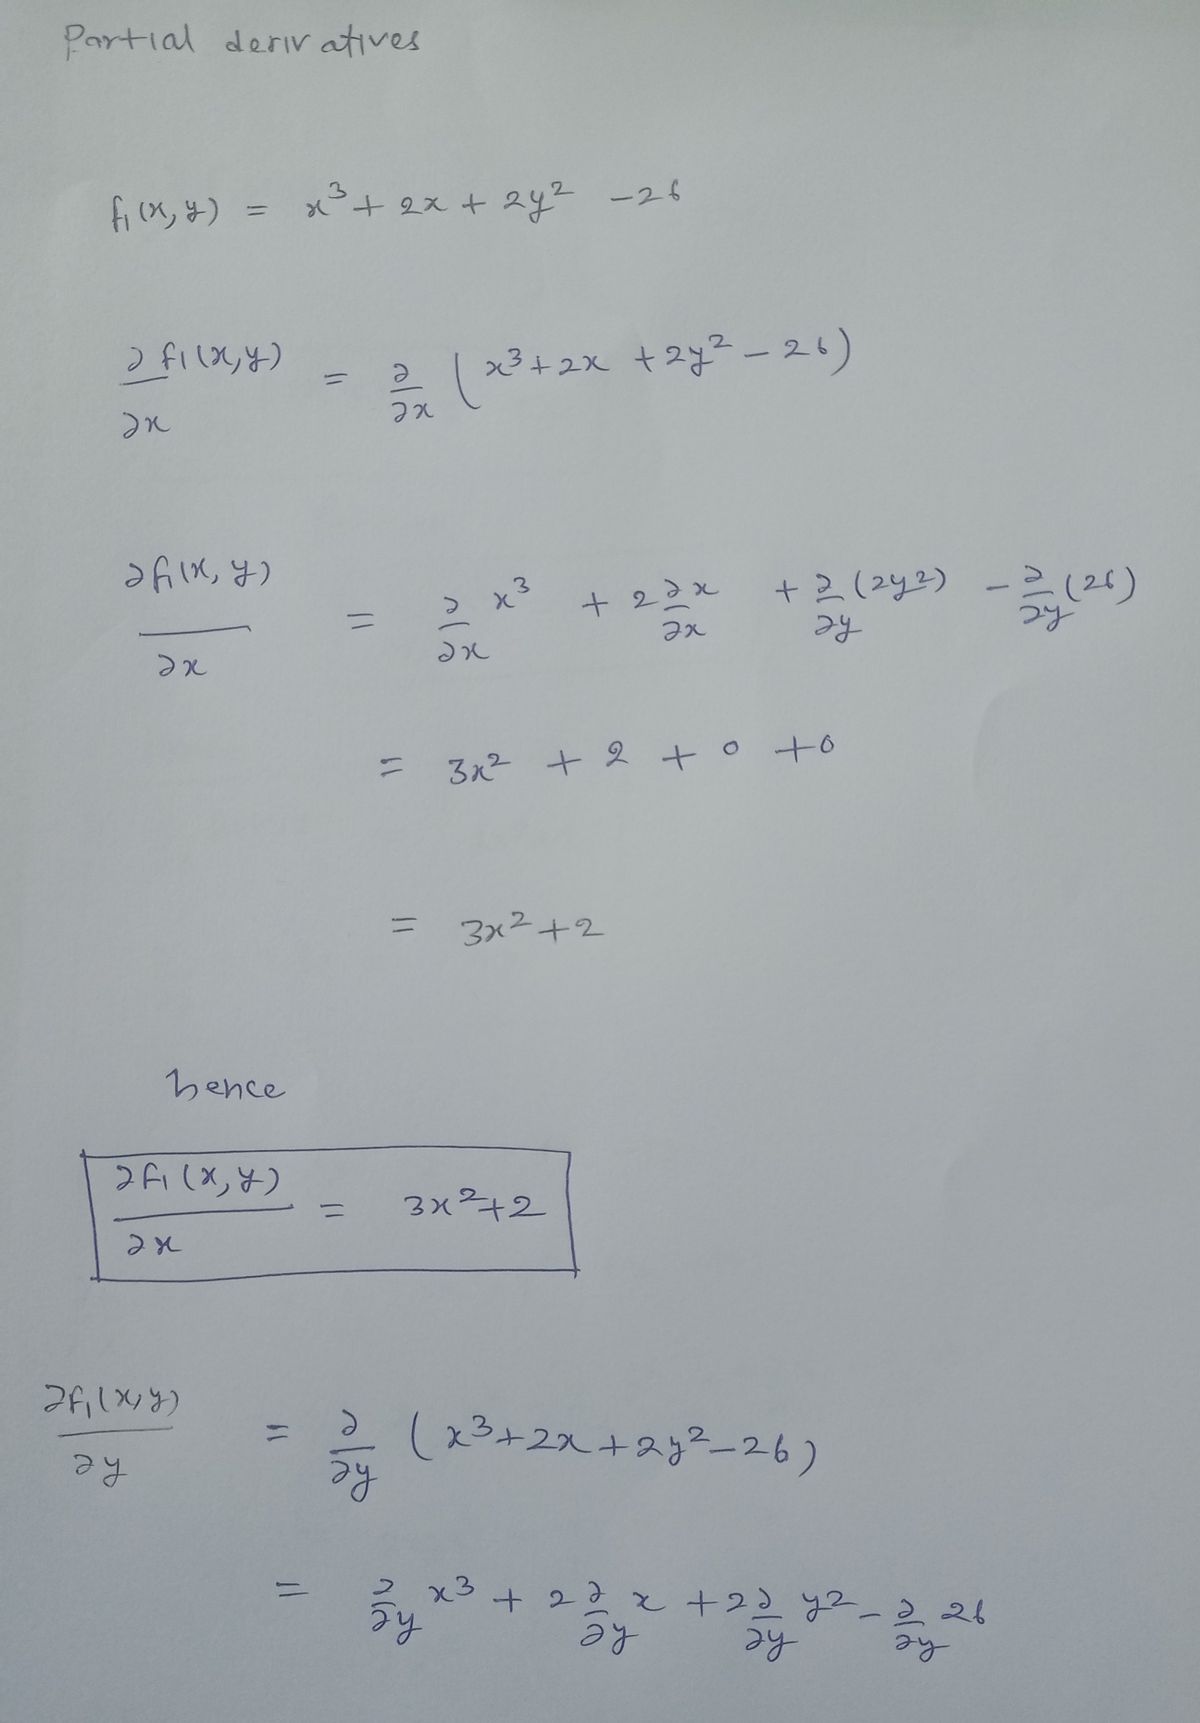 Partial derivatives
f₁(x, y) = x³ + 2x + 2y² - 26
∂f₁(x,y)/∂x = ∂/∂x (x³ + 2x + 2y² - 26)
∂f₁(x, y)/∂x = ∂/∂x x³ + 2 ∂/∂x x + ∂/∂y (2y²) - ∂/∂y (26)
= 3x² + 2 + 0 + 0
= 3x² + 2
hence
∂f₁(x, y)/∂x = 3x² + 2
∂f₁(x,y)/∂y = ∂/∂y (x³ + 2x + 2y² - 26)
= ∂/∂y x³ + 2 ∂/∂y x + 2 ∂/∂y y² - ∂/∂y 26